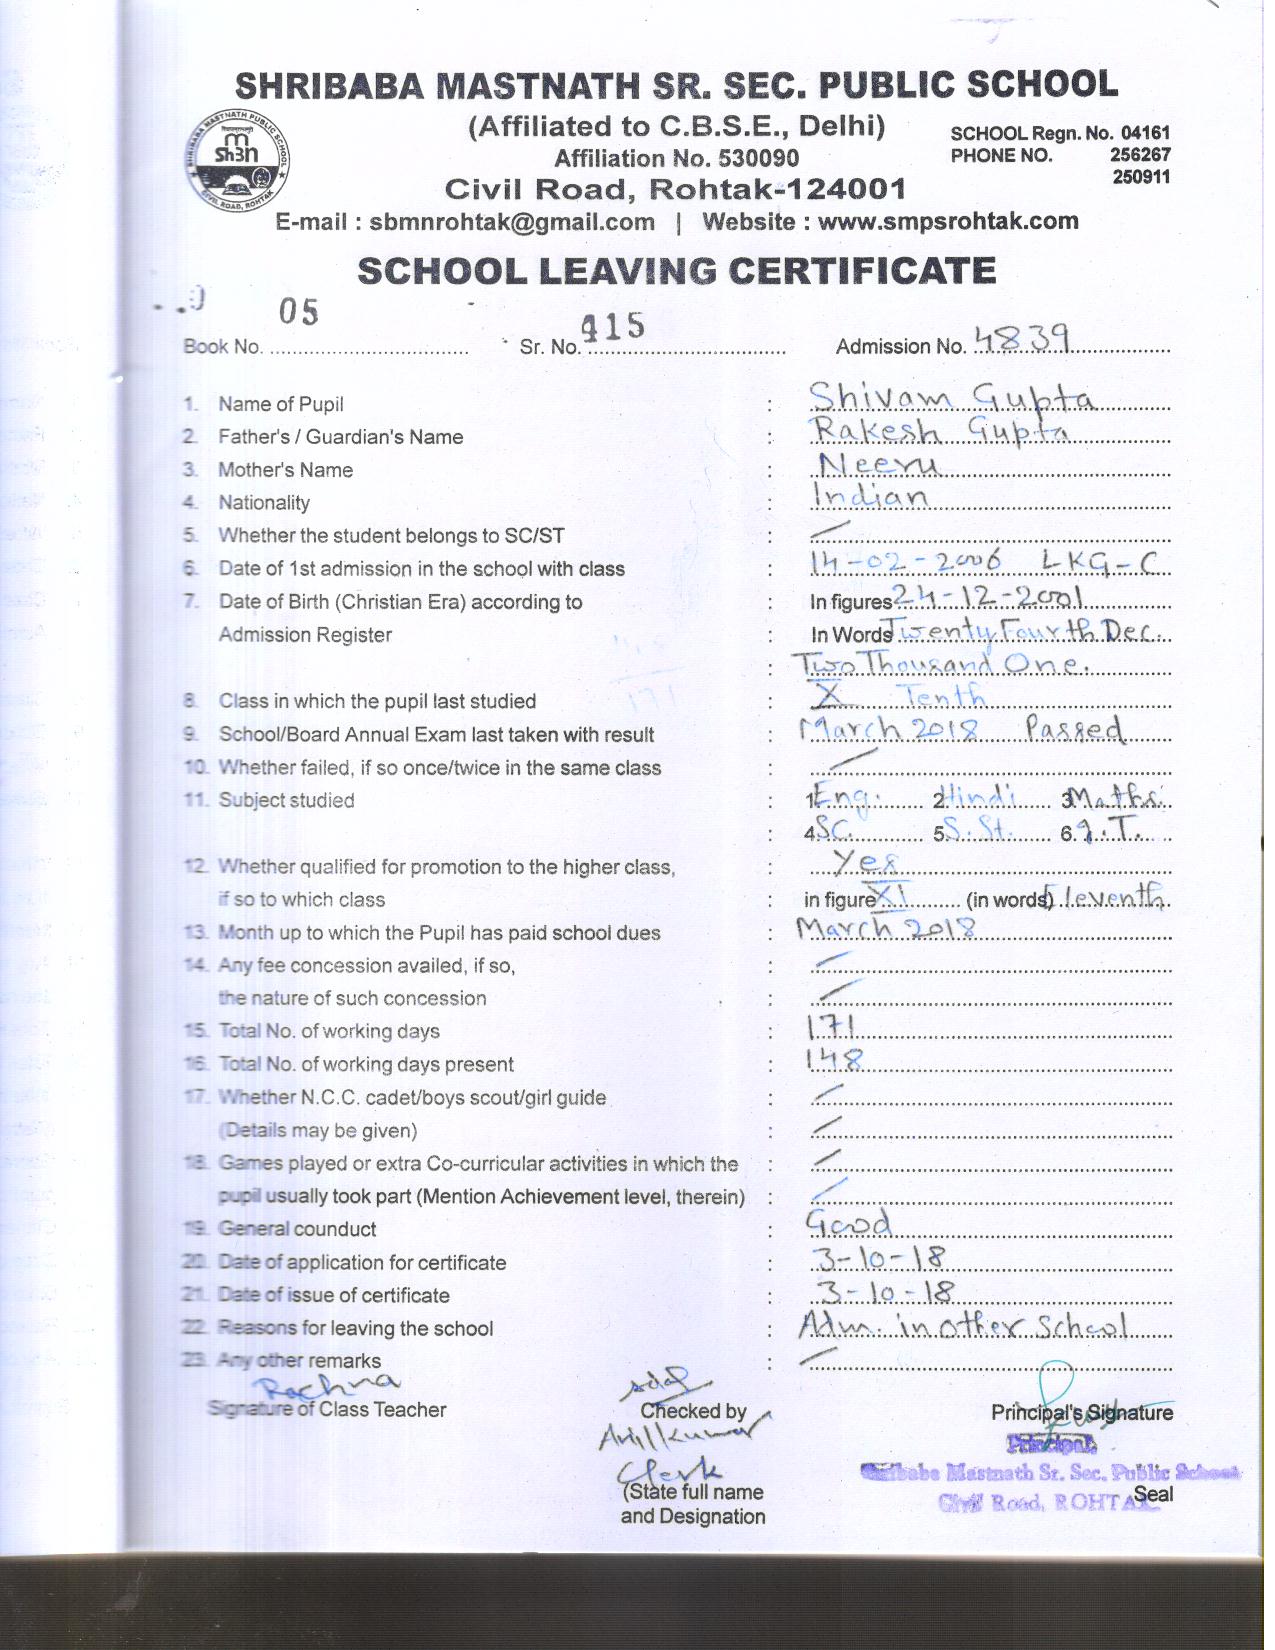 SHRIBABA MASTNATH SR. SEC. PUBLIC SCHOOL
(Affiliated to C.B.S.E., Delhi)
SCHOOL Regn. No. 04161
Affiliation No. 530090
PHONE NO. 256267
250911
Civil Road, Rohtak-124001
E-mail : sbmnrohtak@gmail.com | Website : www.smpsrohtak.com
SHRIBABA MASTNATH PUBLIC SCHOOL
Sh3n
CIVIL ROAD, ROHTAK
SCHOOL LEAVING CERTIFICATE
Book No. 05 Sr. No. 415 Admission No. 4839
1. Name of Pupil : Shivam Gupta
2. Father's / Guardian's Name : Rakesh Gupta
3. Mother's Name : Neeru
4. Nationality : Indian
5. Whether the student belongs to SC/ST :
6. Date of 1st admission in the school with class : 14-02-2006 LKG-C
7. Date of Birth (Christian Era) according to : In figures 24-12-2001
Admission Register : In Words Twenty Fourth Dec.
: Two Thousand One.
8. Class in which the pupil last studied : X Tenth
9. School/Board Annual Exam last taken with result : March 2018 Passed
10. Whether failed, if so once/twice in the same class :
11. Subject studied : 1 Eng. 2 Hindi 3 Maths
: 4 SC. 5 S.St. 6. I.T.
12. Whether qualified for promotion to the higher class, : Yes
if so to which class : in figure XI (in words) Eleventh
13. Month up to which the Pupil has paid school dues : March 2018
14. Any fee concession availed, if so, :
the nature of such concession :
15. Total No. of working days : 171
16. Total No. of working days present : 148
17. Whether N.C.C. cadet/boys scout/girl guide :
(Details may be given) :
18. Games played or extra Co-curricular activities in which the :
pupil usually took part (Mention Achievement level, therein) :
19. General counduct : Good
20. Date of application for certificate : 3-10-18
21. Date of issue of certificate : 3-10-18
22. Reasons for leaving the school : Adm. in other School
23. Any other remarks :
Rachna
Signature of Class Teacher Checked by Principal's Signature
Anil Kumar
Principal,
Clerk
Shribaba Mastnath Sr. Sec. Public School
(State full name Seal
Civil Road, ROHTAK
and Designation